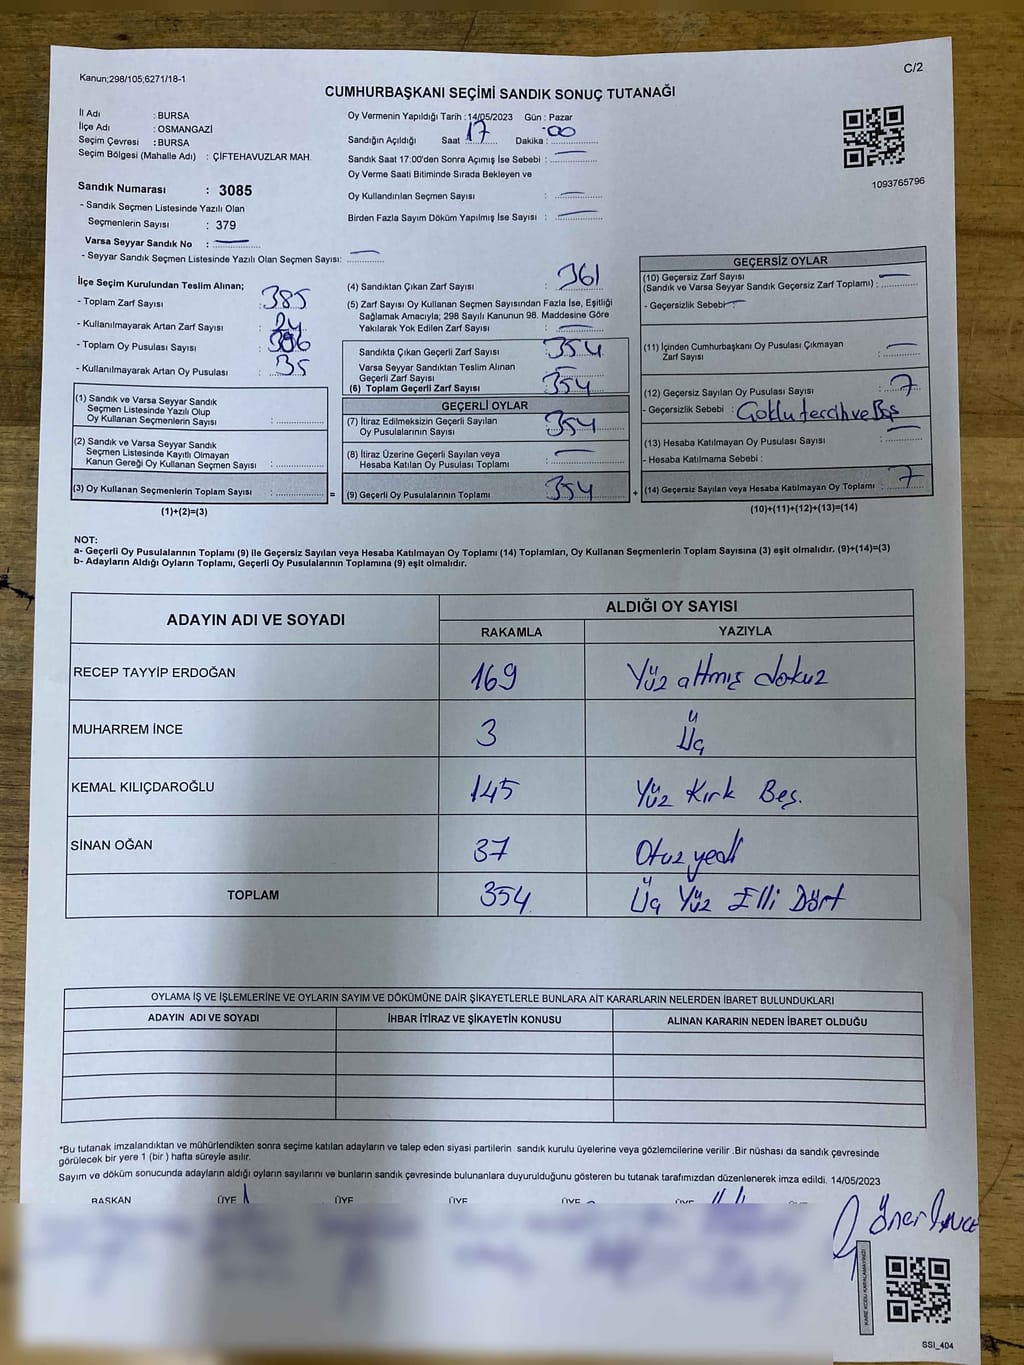 Kanun;298/105;6271/18-1
C/2
CUMHURBAŞKANI SEÇİMİ SANDIK SONUÇ TUTANAĞI
İl Adı : BURSA
İlçe Adı : OSMANGAZİ
Seçim Çevresi : BURSA
Seçim Bölgesi (Mahalle Adı) : ÇİFTEHAVUZLAR MAH.
Sandık Numarası : 3085
- Sandık Seçmen Listesinde Yazılı Olan
Seçmenlerin Sayısı : 379
Varsa Seyyar Sandık No :
- Seyyar Sandık Seçmen Listesinde Yazılı Olan Seçmen Sayısı:
Oy Vermenin Yapıldığı Tarih : 14/05/2023 Gün : Pazar
Sandığın Açıldığı Saat 17 Dakika : 00
Sandık Saat 17:00'den Sonra Açımış İse Sebebi :
Oy Verme Saati Bitiminde Sırada Bekleyen ve
Oy Kullandırılan Seçmen Sayısı :
Birden Fazla Sayım Döküm Yapılmış İse Sayısı :
1093765796
İlçe Seçim Kurulundan Teslim Alınan;
- Toplam Zarf Sayısı : 385
- Kullanılmayarak Artan Zarf Sayısı : 24
- Toplam Oy Pusulası Sayısı :
- Kullanılmayarak Artan Oy Pusulası : 35
(1) Sandık ve Varsa Seyyar Sandık
Seçmen Listesinde Yazılı Olup
Oy Kullanan Seçmenlerin Sayısı :
(2) Sandık ve Varsa Seyyar Sandık
Seçmen Listesinde Kayıtlı Olmayan
Kanun Gereği Oy Kullanan Seçmen Sayısı :
(3) Oy Kullanan Seçmenlerin Toplam Sayısı : =
(1)+(2)=(3)
(4) Sandıktan Çıkan Zarf Sayısı : 361
(5) Zarf Sayısı Oy Kullanan Seçmen Sayısından Fazla İse, Eşitliği
Sağlamak Amacıyla; 298 Sayılı Kanunun 98. Maddesine Göre
Yakılarak Yok Edilen Zarf Sayısı :
Sandıkta Çıkan Geçerli Zarf Sayısı 354
Varsa Seyyar Sandıktan Teslim Alınan
Geçerli Zarf Sayısı
(6) Toplam Geçerli Zarf Sayısı 354
GEÇERLİ OYLAR
(7) İtiraz Edilmeksizin Geçerli Sayılan
Oy Pusulalarının Sayısı : 354
(8) İtiraz Üzerine Geçerli Sayılan veya
Hesaba Katılan Oy Pusulası Toplamı :
(9) Geçerli Oy Pusulalarının Toplamı 354 +
GEÇERSİZ OYLAR
(10) Geçersiz Zarf Sayısı
(Sandık ve Varsa Seyyar Sandık Geçersiz Zarf Toplamı) :
- Geçersizlik Sebebi
(11) İçinden Cumhurbaşkanı Oy Pusulası Çıkmayan
Zarf Sayısı :
(12) Geçersiz Sayılan Oy Pusulası Sayısı : 7
- Geçersizlik Sebebi : Çoklu tercih ve Boş
(13) Hesaba Katılmayan Oy Pusulası Sayısı :
- Hesaba Katılmama Sebebi :
(14) Geçersiz Sayılan veya Hesaba Katılmayan Oy Toplamı : 7
(10)+(11)+(12)+(13)=(14)
NOT:
a- Geçerli Oy Pusulalarının Toplamı (9) ile Geçersiz Sayılan veya Hesaba Katılmayan Oy Toplamı (14) Toplamları, Oy Kullanan Seçmenlerin Toplam Sayısına (3) eşit olmalıdır. (9)+(14)=(3)
b- Adayların Aldığı Oyların Toplamı, Geçerli Oy Pusulalarının Toplamına (9) eşit olmalıdır.
ADAYIN ADI VE SOYADI
ALDIĞI OY SAYISI
RAKAMLA YAZIYLA
RECEP TAYYİP ERDOĞAN 169 Yüz altmış dokuz
MUHARREM İNCE 3 Üç
KEMAL KILIÇDAROĞLU 145 Yüz Kırk Beş.
SİNAN OĞAN 37 Otuz yedi
TOPLAM 354 Üç Yüz Elli Dört
OYLAMA İŞ VE İŞLEMLERİNE VE OYLARIN SAYIM VE DÖKÜMÜNE DAİR ŞİKAYETLERLE BUNLARA AİT KARARLARIN NELERDEN İBARET BULUNDUKLARI
ADAYIN ADI VE SOYADI İHBAR İTİRAZ VE ŞİKAYETİN KONUSU ALINAN KARARIN NEDEN İBARET OLDUĞU
*Bu tutanak imzalandıktan ve mühürlendikten sonra seçime katılan adayların ve talep eden siyasi partilerin sandık kurulu üyelerine veya gözlemcilerine verilir .Bir nüshası da sandık çevresinde
görülecek bir yere 1 (bir ) hafta süreyle asılır.
Sayım ve döküm sonucunda adayların aldığı oyların sayılarını ve bunların sandık çevresinde bulunanlara duyurulduğunu gösteren bu tutanak tarafımızdan düzenlenerek imza edildi. 14/05/2023
BAŞKAN ÜYE ÜYE ÜYE ÜYE ÜYE
KARE KODU KARALAMAYINIZ!
SSI_404